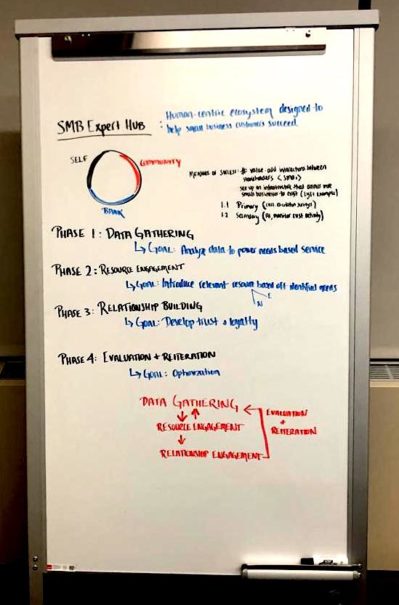 SMB Expert Hub : Human-centric ecosystem designed to
help small business customers succeed
SELF
COMMUNITY
BANK
Measure of success: # value add interactions between
stakeholders (SMBs)
set up an infrastructure that allows
small business to
1.1 Primary
1.2 Secondary
PHASE 1: DATA GATHERING
↳ GOAL: Analyze data to power needs based service
PHASE 2: RESOURCE ENGAGEMENT
↳ GOAL: Introduce relevant resource based off identified needs
PHASE 3: RELATIONSHIP BUILDING
↳ GOAL: Develop trust & loyalty
PHASE 4: EVALUATION + REITERATION
↳ GOAL: Optimization
DATA GATHERING
RESOURCE ENGAGEMENT
RELATIONSHIP ENGAGEMENT
EVALUATION
+
REITERATION